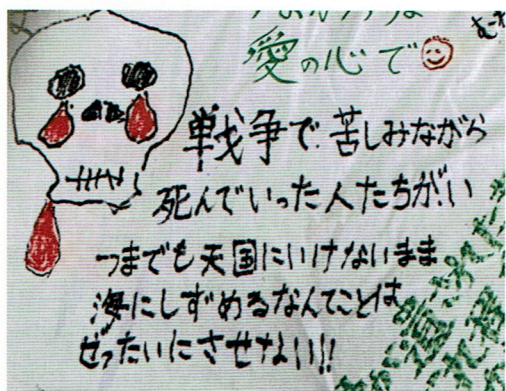 愛の心で
戦争で苦しみながら
死んでいった人たちがい
つまでも天国にいけないまま
海にしずめるなんてことは
ぜったいにさせない!!